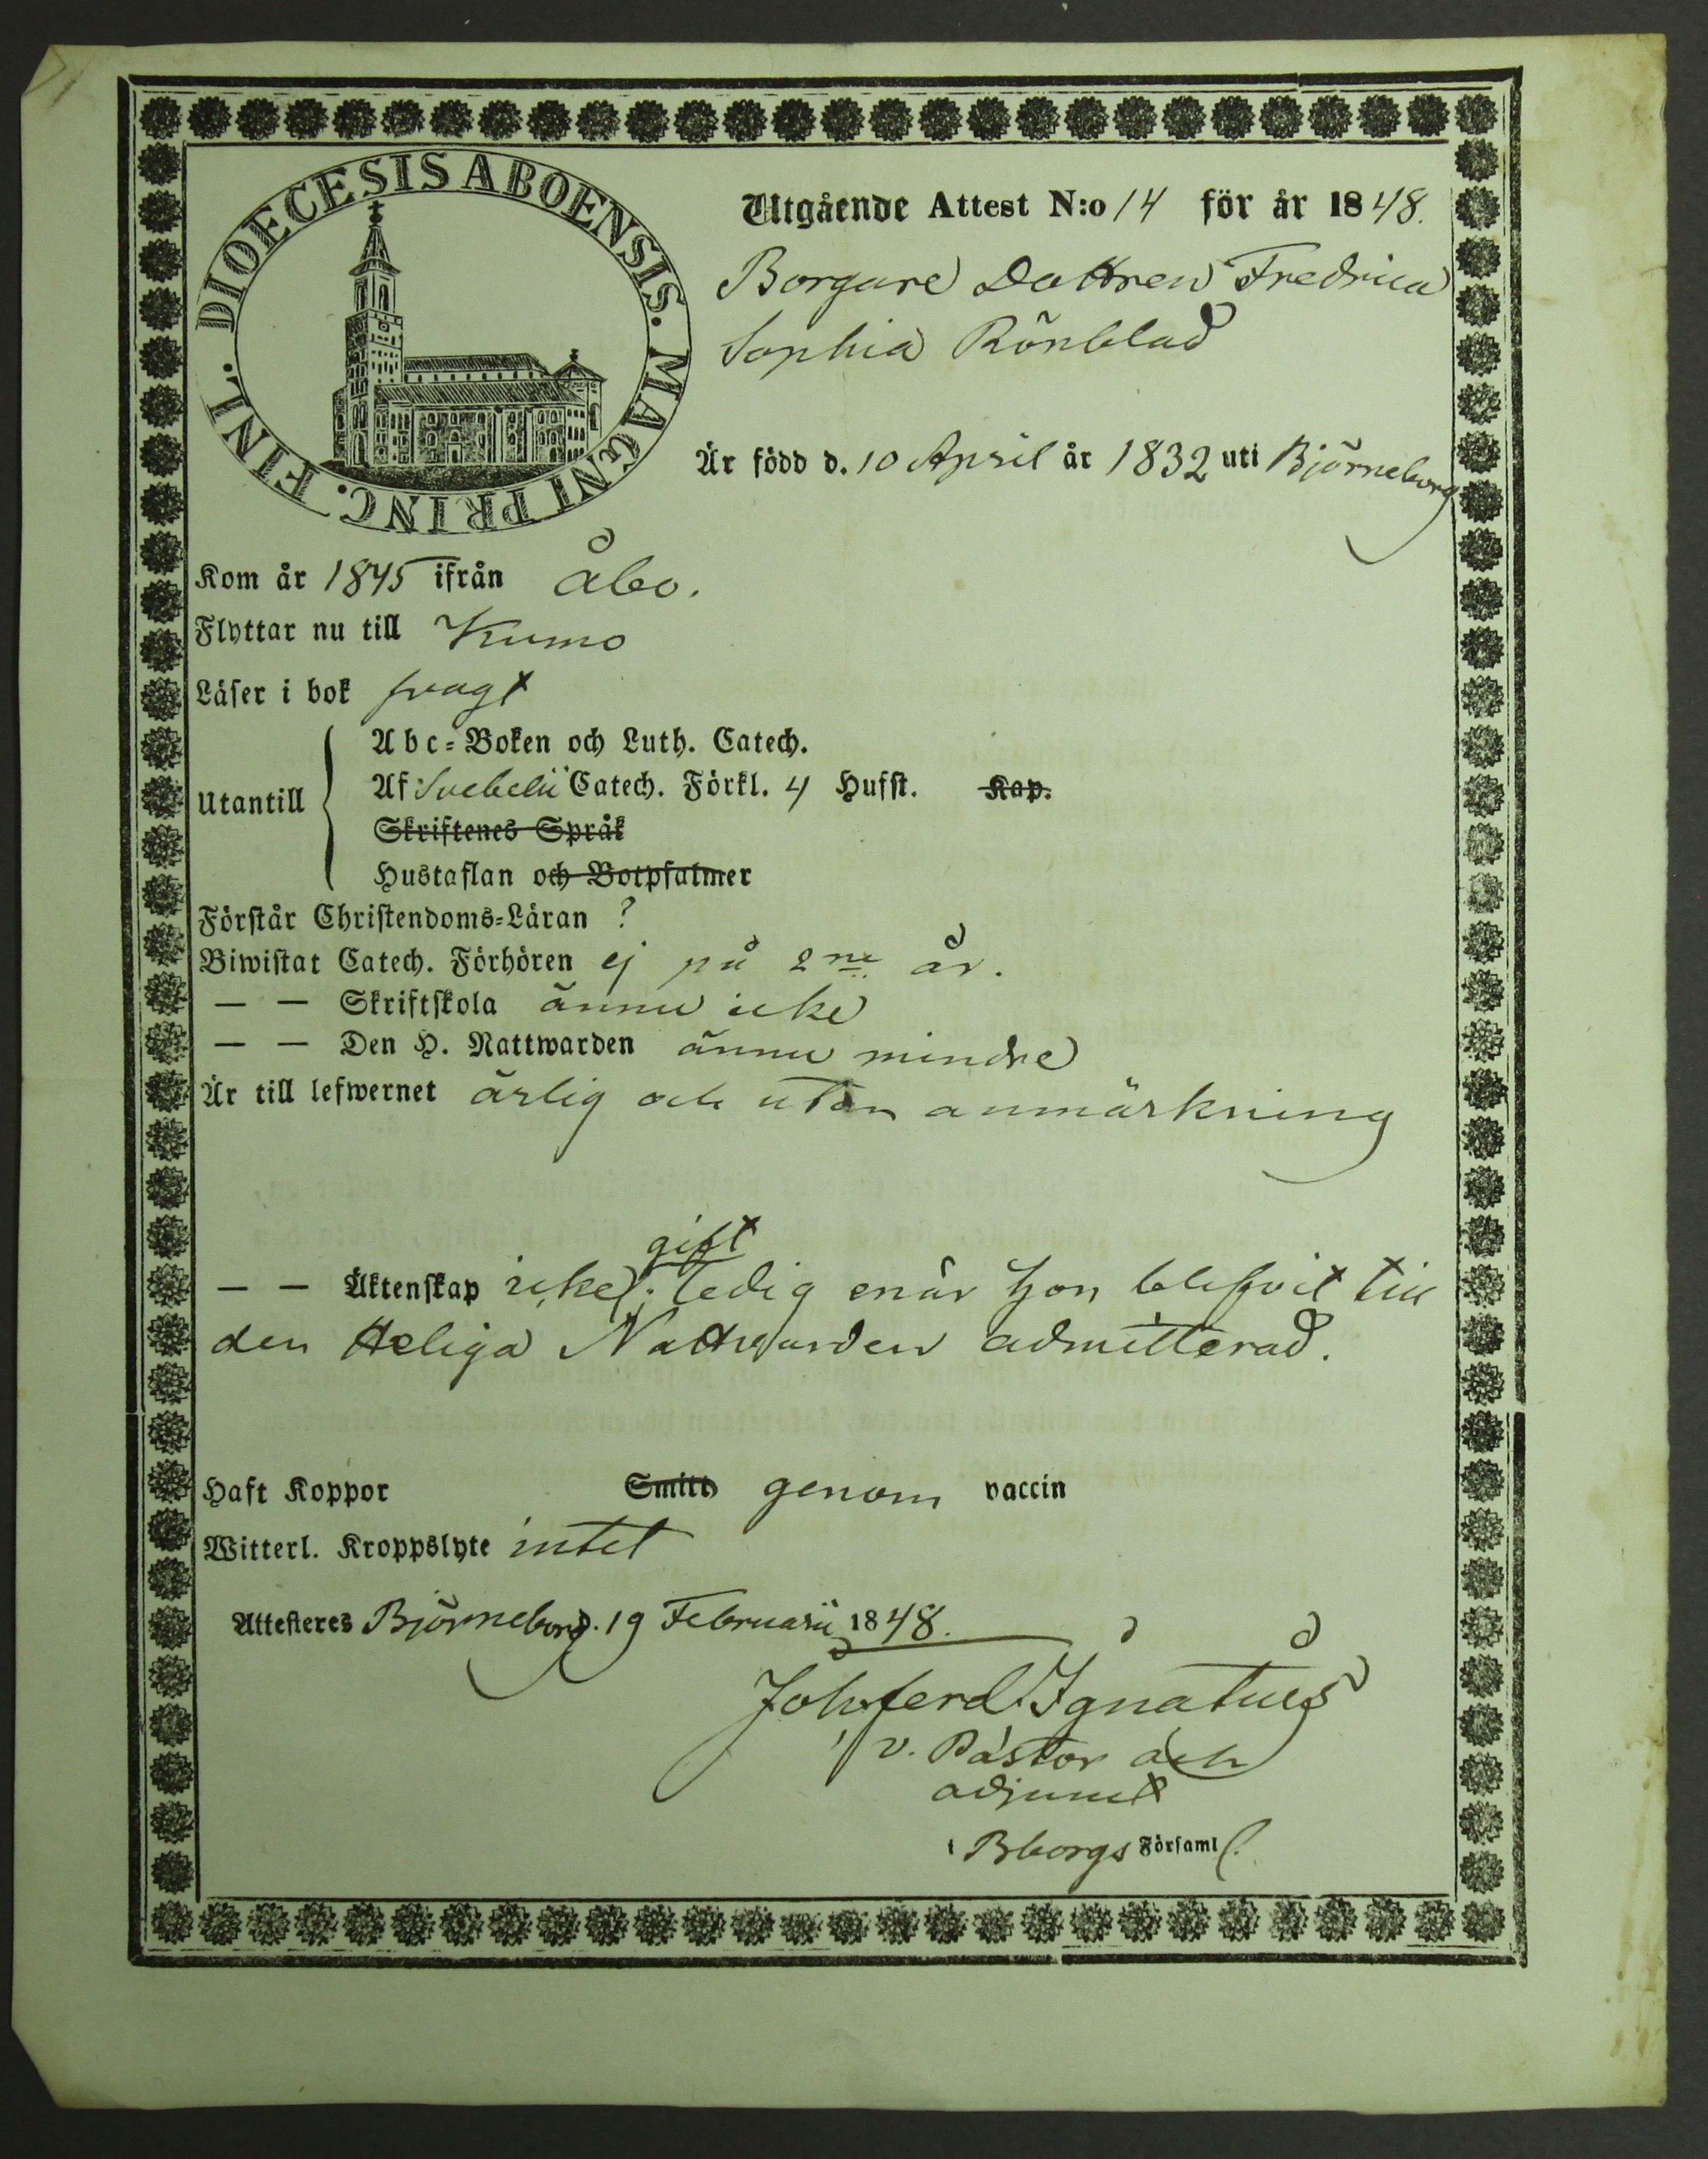 DIOECESIS ABOENSIS. MAGNI PRINC. FINL.
Utgående Attest N:o 14 för år 1848.
Borgare Dottren Fredrica
Sophia Rönblad
Är född d. 10 April år 1832 uti Björneborg
Kom år 1845 ifrån Åbo.
Flyttar nu till Kumo
Läser i bok svagt
Utantill
Abc-Boken och Luth. Catech.
Af Svebelii Catech. Förkl. 4 Hufst. Kap.
Skriftenes Språk
Hustaflan och Botpsalmer
Förstår Christendoms-Läran ?
Biwistat Catech. Förhören ej på 2ne år.
— — Skriftskola ännu icke
— — Den H. Nattwarden ännu mindre
Är till lefwernet ärlig och utan anmärkning
gift
— — Äktenskap icke; ledig enär hon blifvit till
den Heliga Nattvarden admitterad.
Haft Koppor Smitt genom vaccin
Witterl. Kroppslyte intet
Attesteres Björneborg d. 19 Februarii 1848.
Joh. Ferd. Ignatius
v. Pastor och
adjunct
i Bborgs Församl.